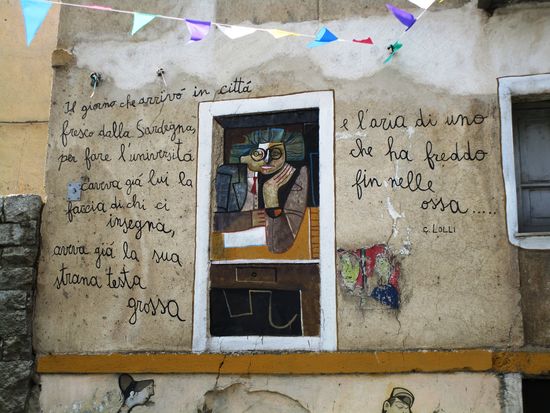 Il giorno che arrivó in cittá
fresco dalla Sardegna,
per fare l'universitá
aveva giá lui la
faccia di chi ci
insegna,
aveva giá la sua
strana testa
grossa
e l'aria di uno
che ha freddo
fin nelle
ossa.....
C. LOLLI